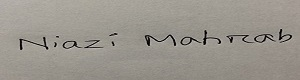 Niazi Mahrab